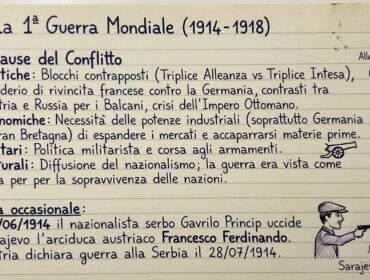 La 1ª Guerra Mondiale (1914-1918)
ause del Conflitto
Alle
tiche: Blocchi contrapposti (Triplice Alleanza vs Triplice Intesa),
derio di rivincita francese contro la Germania, contrasti tra
tria e Russia per i Balcani, crisi dell'Impero Ottomano.
nomiche: Necessità delle potenze industriali (soprattutto Germania
ran Bretagna) di espandere i mercati e accaparrarsi materie prime.
tari: Politica militarista e corsa agli armamenti.
urali: Diffusione del nazionalismo; la guerra era vista come
a per per la sopravvivenza delle nazioni.
a occasionale:
/06/1914 il nazionalista serbo Gavrilo Princip uccide
rajevo l'arciduca austriaco Francesco Ferdinando.
tria dichiara guerra alla Serbia il 28/07/1914.
Sarajev